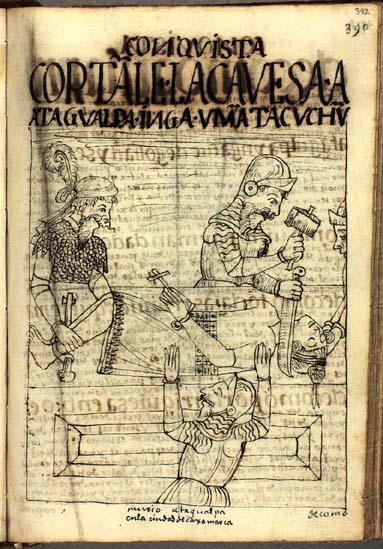 392
390
CONQVISTA
CORTÃLE·LA CAVESA·A
ATAGVALPA·INGA·VMÃTACVCHṼ
murio atagualpa
en la ciudad de caxamarca
de como